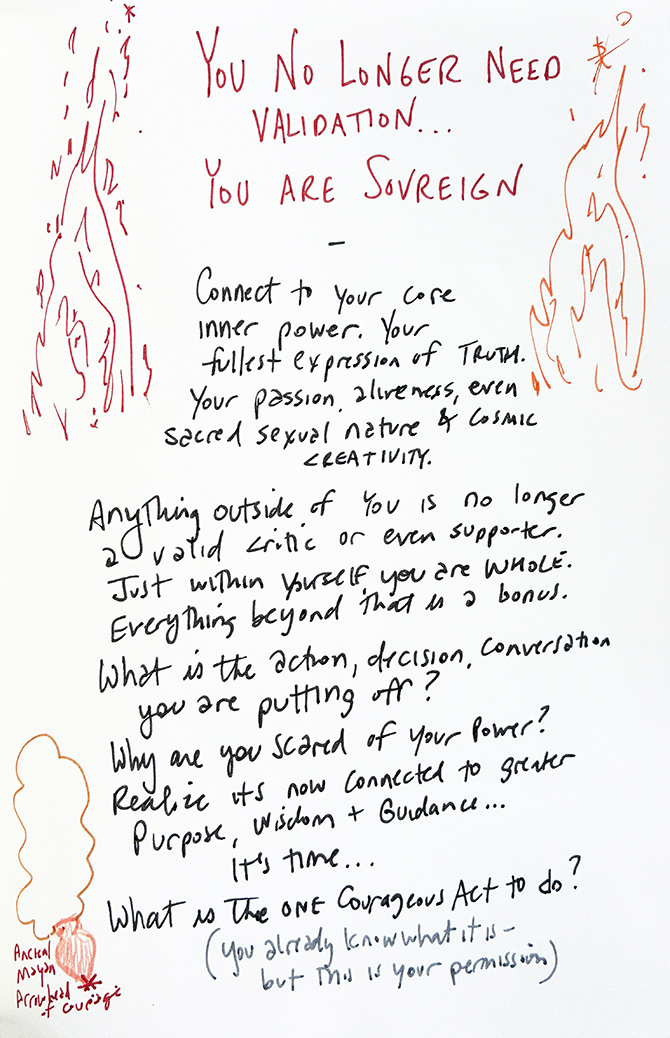 You No Longer Need
Validation...
You are Sovreign
–
Connect to your core
inner power. Your
fullest expression of TRUTH.
Your passion, aliveness, even
sacred sexual nature & COSMIC
CREATIVITY.
Anything outside of You is no longer
a valid critic or even supporter.
Just within yourself you are WHOLE.
Everything beyond that is a bonus.
What is the action, decision, conversation
you are putting off?
Why are you scared of your Power?
Realize it's now connected to greater
Purpose, Wisdom + Guidance...
It's time...
What is the ONE Courageous Act to do?
(You already know what it is –
but this is your permission)
Ancient
Mayan
Arrowhead
of courage